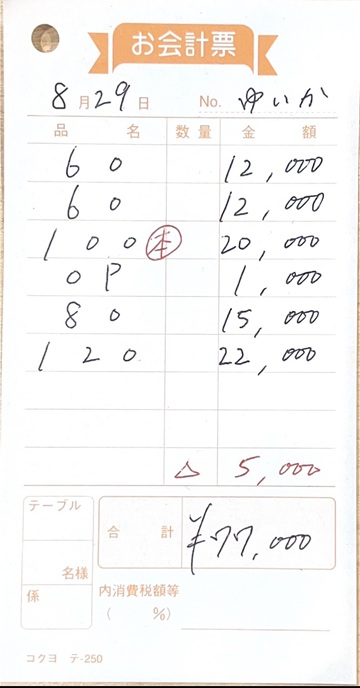 お会計票
8月29日 No. ゆいか
品名 数量 金額
60 12,000
60 12,000
100 本 20,000
OP 1,000
80 15,000
120 22,000
△ 5,000
テーブル
合計 ¥77,000
名様
係
内消費税額等
( %)
コクヨ テ-250